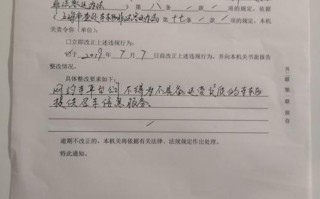 第 八 条 的规定,依据
《上海市查处车辆非法客运办法》第 十七条 / 的规定,本机
关责令你(单位):
口立即改正上述违规行为;
于2019年7月7日前改正上述违规行为,并向本机关书面报告
整改情况。
具体整改要求如下:
网约车平台公司不得为不具备营运资质的车辆
提供召车信息服务
逾期不改正的,本机关将依据有关法律、法规规定作出处理。
特此通知。